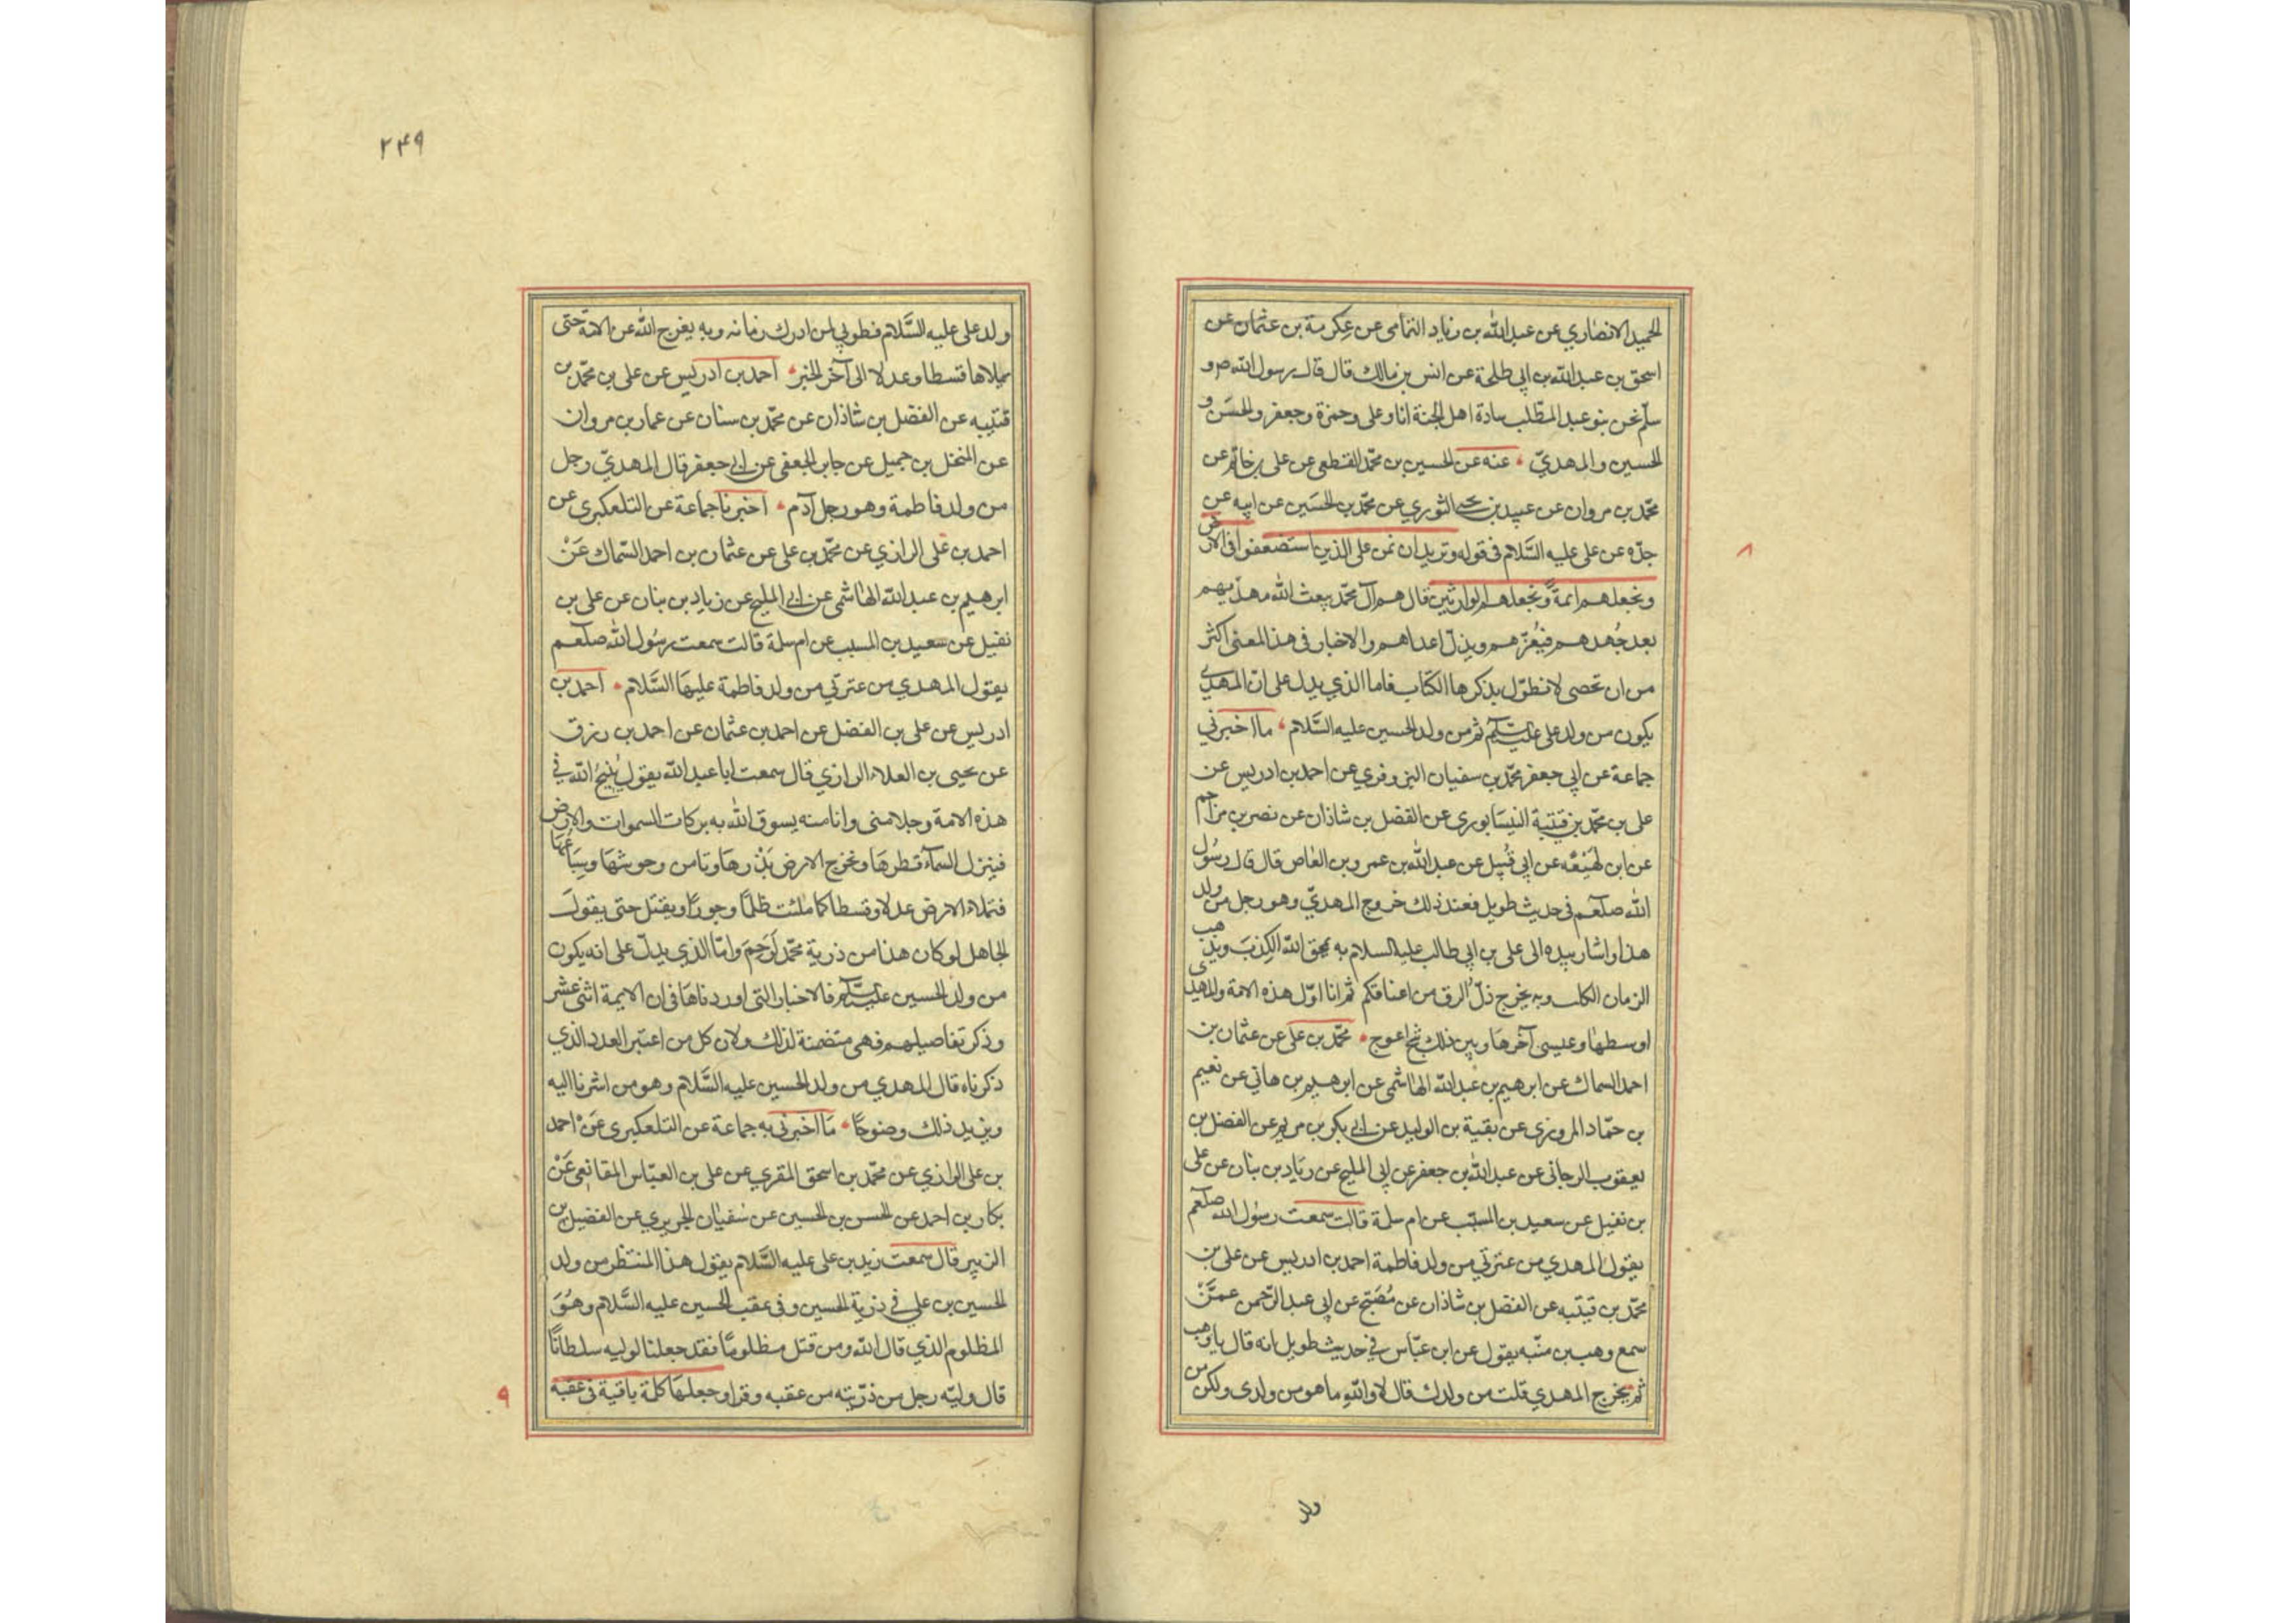 الحميد الانصاري عن عبد الله بن زياد التمامى عن عكرمة بن عثمان عن
اسحق بن عبد الله بن ابي طلحة عن انس بن مالك قال قال رسول الله ص و
سلّم نحن بنو عبد المطّلب سادة اهل الجنة انا وعلى وحمزة وجعفر والحسن و
الحسين والمهديّ عنه عن الحسين بن محمّد القطعى عن على بن حاتم عن
محمّد بن مروان عن عبيد بن يحيى الثوري عن محمّد بن الحسَين عن ابيه عن
جدّه عن على عليه السَّلام فى قوله ونريد ان نمن على الذين استضعفوا فى الارض
ونجعلهم ائمةً ونجعلهم الوارثين قال هم آل محمّد يبعث الله مهديهم
بعد جُهدهم فيُعزّهم ويذلّ اعداهم والاخبار فى هذا المعنى اكثر
من ان تحصى لا نطوّل بذكرها الكتاب فاما الذي يدل على انّ المهدي
يكون من ولد على عليه السلم ثم من ولد الحسين عليه السَّلام ما اخبرني
جماعة عن ابي جعفر محمّد بن سفيان البزوفري عن احمد بن ادريس عن
على بن محمّد بن قتيبة النيسَابورى عن الفضل بن شاذان عن نصر بن مزاحم
عن ابن لهَيْعَه عن ابي قُبيل عن عبد الله بن عمرو بن العاص قال قال رسُول
الله صلعم فى حديث طويل فعند ذلك خروج المهديّ وهو رجل من ولد
هذا واشار بيده الى على بن ابي طالب عليه السلام به يمحق الله الكِذبَ ويذهب
الزمان الكلب وبه يخرج ذلّ الرق من اعناقكم ثم انا اوّل هذه الامة والمهدى
اوسطها وعيسى آخرها وبين ذلك شخ اعوج محمّد بن على عن عثمان بن
احمد السماك عن ابرهيم بن عبد الله الهاشمى عن ابرهيم بن هاني عن نعيم
بن حمّاد المروزى عن بقية بن الوليد عن ابي بكر بن مريم عن الفضل بن
يعقوب الرجانى عن عبد الله بن جعفر عن ابي المليح عن زياد بن بنان عن على
بن نفيل عن سعيد بن المسيّب عن ام سلمة قالت سمعت رسُول الله صلعم
يقول المهدي من عترتي من ولد فاطمة احمد بن ادريس عن على بن
محمّد بن قتيبه عن الفضل بن شاذان عن مُصَبّح عن ابي عبد الرّحمن عمَّنْ
سمع وهب بن منّبه يقول عن ابن عبّاس في حديث طويل انه قال يا وهب
ثم يخرج المهدي قلت من ولدك قال لا واللهِ ما هو من ولدى ولكن من
ولد
٢٤٩
ولد على عليه السَّلام فطوبي لمن ادرك زمانه وبه يفرج الله عن الامّة حتى
يملاها قسطا وعدلا الى آخر الخبر احمد بن ادريس عن على بن محمّد بن
قتيبه عن الفضل بن شاذان عن محمّد بن سنان عن عمار بن مروان
عن المنخل بن جميل عن جابر الجعفى عن ابي جعفر قال المهديّ رجل
من ولد فاطمة وهو رجل آدم اخبرنا جماعة عن التلعكبرى عن
احمد بن على الرازي عن محمّد بن على عن عثمان بن احمد السّماك عَنْ
ابرهيم بن عبد الله الهاشمى عن ابي المليح عن زياد بن بنان عن على بن
نفيل عن سعيد بن المسيب عن ام سلمة قالت سمعت رسُول الله صلعم
يقول المهدي من عترتي من ولد فاطمة عليها السَّلام احمد بن
ادريس عن على بن الفضل عن احمد بن عثمان عن احمد بن رزق
عن يحيى بن العلاء الرازي قال سمعت ابا عبد الله يقول يُنيحُ الله في
هذه الامة رجلا منى وانا منه يسوق الله به بركات السموات والارض
فينزل السمآء قطرها وتخرج الارض بَذْرها وتامن وحوشها وسِبَاعُهَا
فتملاء الارض عدلا وقسطا كما ملئت ظلمًا وجورًا ويقتل حتى يقولَ
الجاهل لو كان هذا من ذرية محمّد لَرَحِمَ وامّا الذي يدلّ على انه يكون
من ولد الحسين عليه السلم فالاخبار التى اوردناها فى ان الايمة اثنى عشر
وذكر تفاصيلهم فهى متضمنة لذلك ولان كل من اعتبر العدد الذي
ذكرناه قال المهدي من ولد الحسين عليه السَّلام وهو من اشرنا اليه
ويزيد ذلك وضوحًا مَا اخبرنى به جماعة عن التلعكبرى عَنْ احمد
بن على الرازي عن محمّد بن اسحق المقرى عن على بن العبّاس المقانعى عَنْ
بكار بن احمد عن الحسن بن الحسين عن سُفيان الجريري عن الفضيل بن
الزبير قال سمعت زيد بن على عليه السَّلام يقول هذا المنتظر من ولد
الحسين بن علي في ذرية الحسين وفى عقب الحسين عليه السَّلام وهُوَ
المظلوم الذي قال الله ومن قتل مظلومًا فقد جعلنا لوليه سلطانًا
قال وليّه رجل من ذرّيته من عقبه وقرا وجعلها كلمة باقية فى عقبه